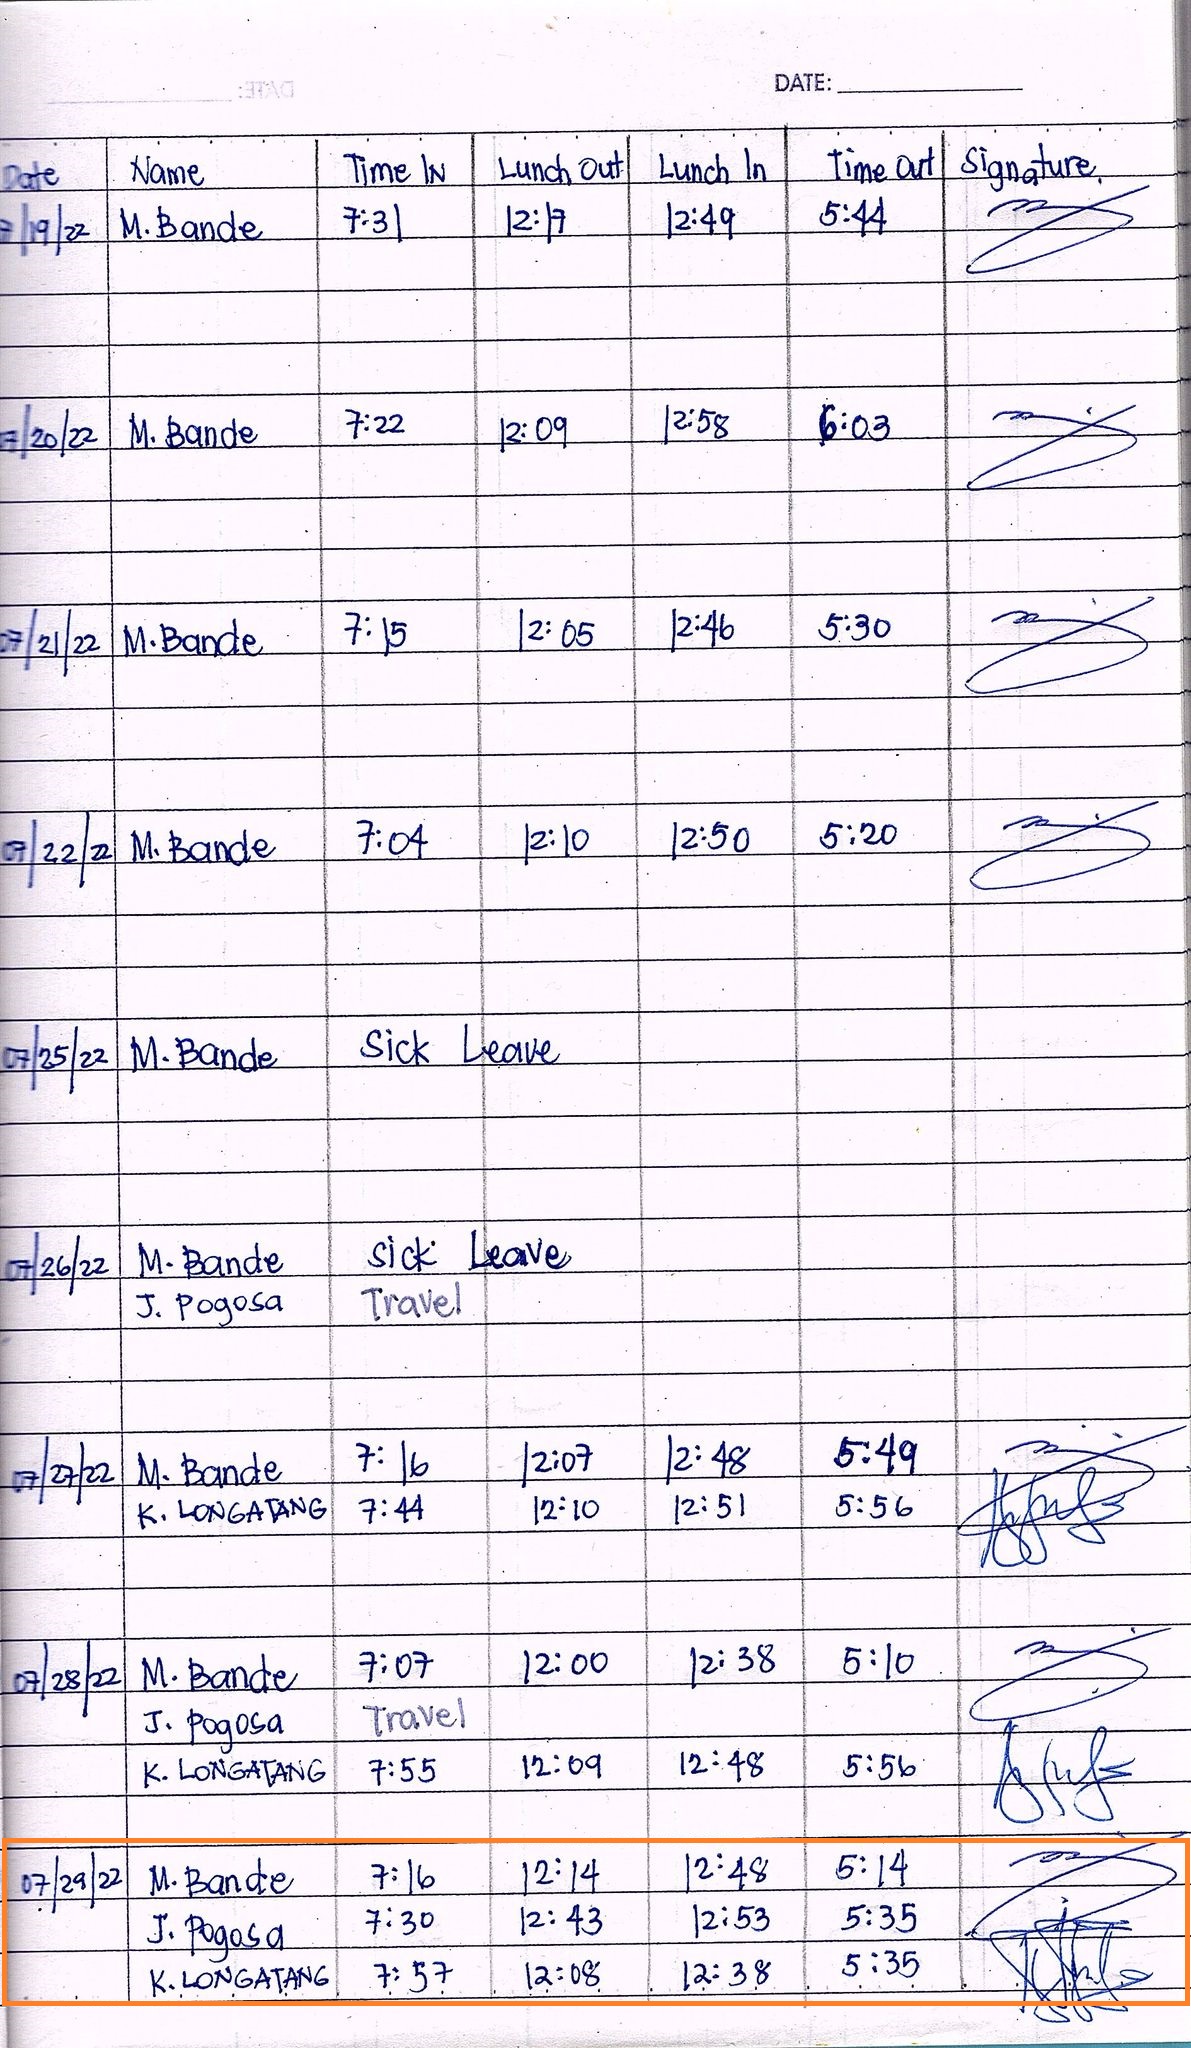 DATE:
Date Name Time In Lunch Out Lunch In Time Out Signature
7/19/22 M. Bande 7:31 12:17 12:49 5:44
07/20/22 M. Bande 7:22 12:09 12:58 6:03
07/21/22 M. Bande 7:15 12:05 12:46 5:30
07/22/22 M. Bande 7:04 12:10 12:50 5:20
07/25/22 M. Bande Sick Leave
07/26/22 M. Bande Sick Leave
J. Pogosa Travel
07/27/22 M. Bande 7:16 12:07 12:48 5:49
K. LONGATANG 7:44 12:10 12:51 5:56
07/28/22 M. Bande 7:07 12:00 12:38 5:10
J. Pogosa Travel
K. LONGATANG 7:55 12:09 12:48 5:56
07/29/22 M. Bande 7:16 12:14 12:48 5:14
J. Pogosa 7:30 12:43 12:53 5:35
K. LONGATANG 7:57 12:08 12:38 5:35